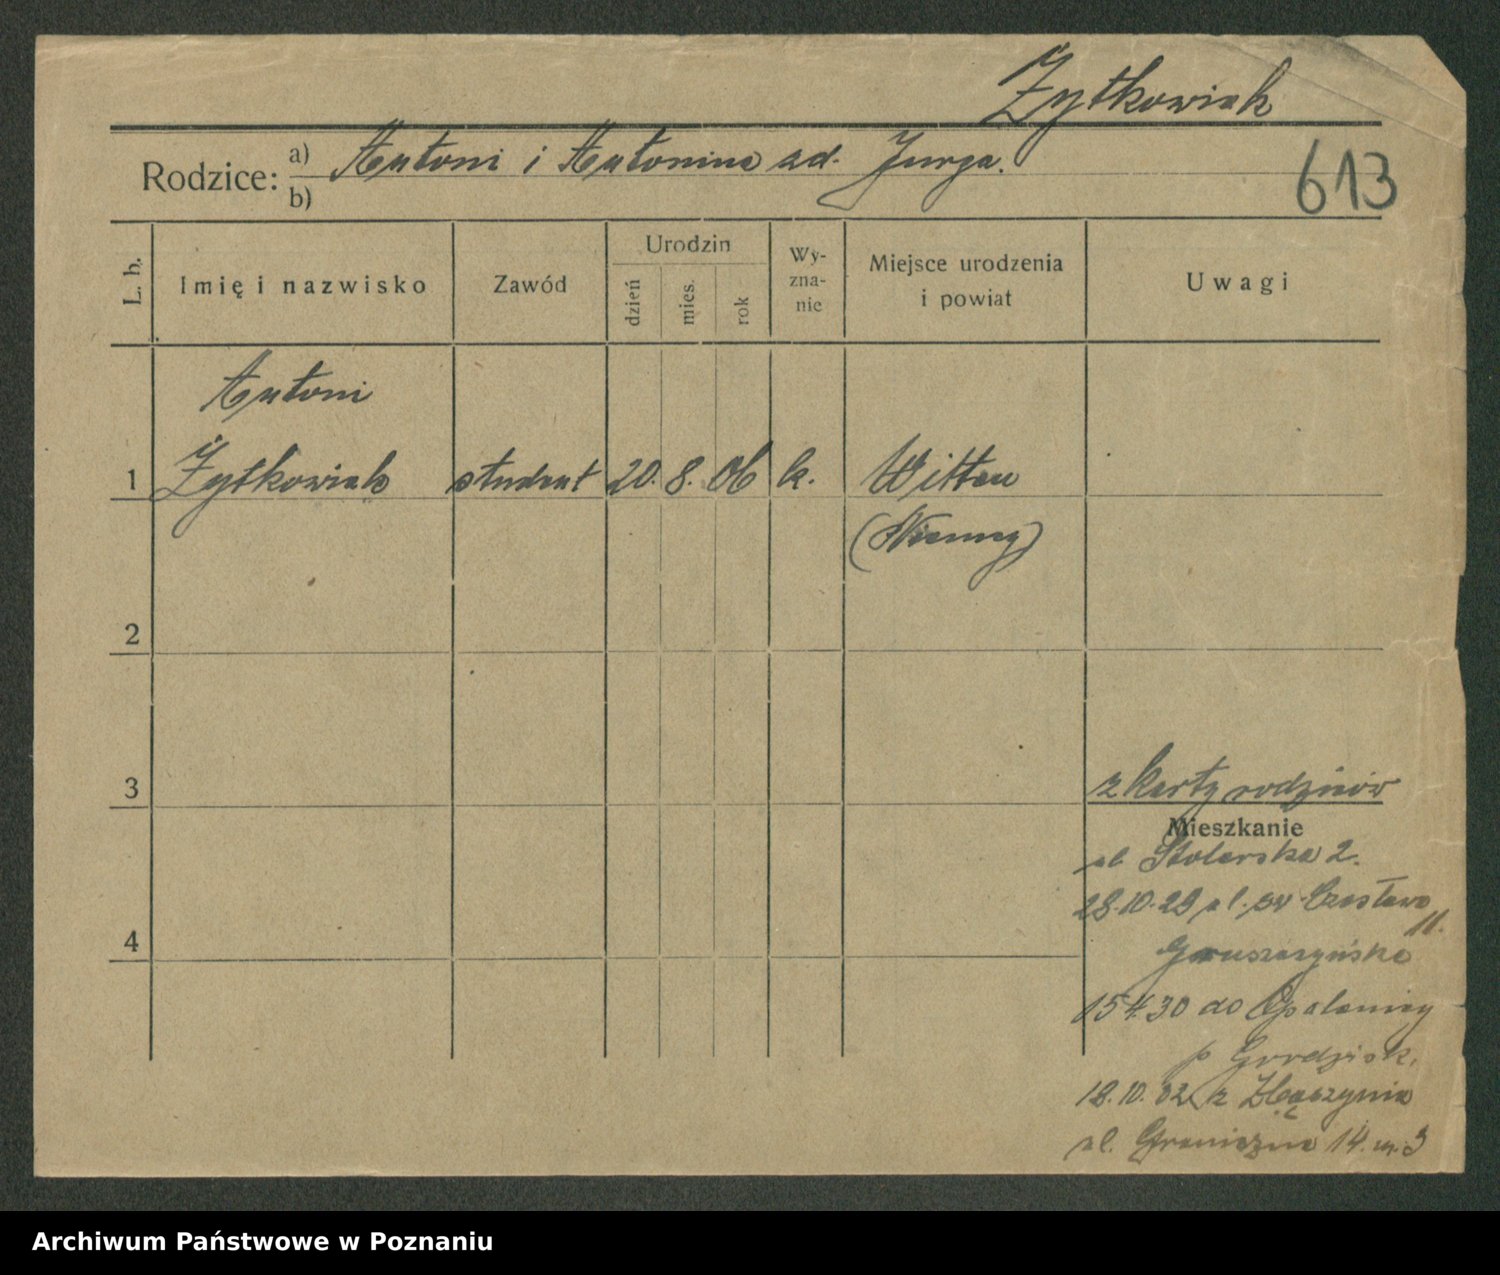 Żytkowiak
Rodzice: a) Antoni i Antonina zd. Jurga.
b)
613
L. b.
Imię i nazwisko
Zawód
Urodzin
dzień
mies.
rok
Wy-
zna-
nie
Miejsce urodzenia
i powiat
Uwagi
Antoni
1 Żytkowiak student 20. 8. 06 k. Witten
(Niemcy)
2
3
z karty rodziców
Mieszkanie
ul Stolarska 2.
28.10.29 ul. św Czesława
11.
Gruszczyńska
15 4.30 do Opalenicy
p Grodzisk.
18.10.32 z Zbąszynia
ul. Graniczna 14. m. 3
4
Archiwum Państwowe w Poznaniu